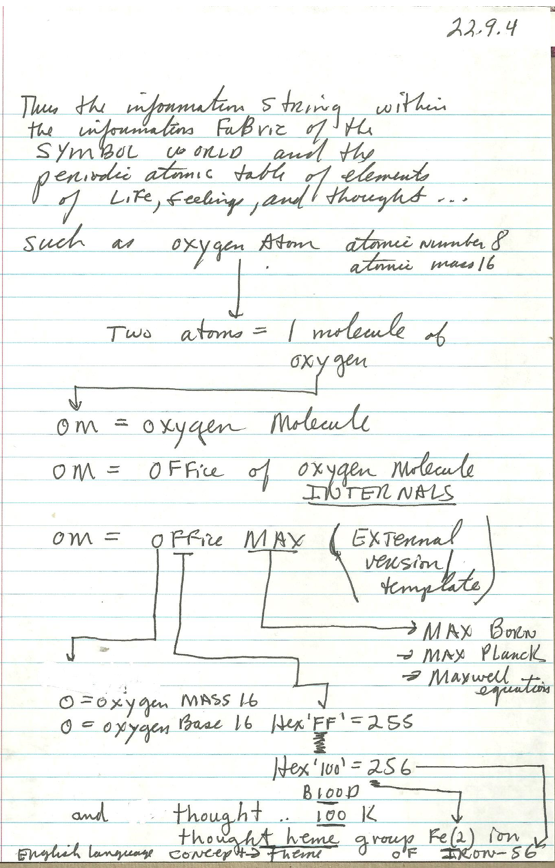 22.9.4
Thus the information string within
the information FaBric of the
SYMBOL WORLD and the
periodic atomic table of elements
of Life, Feelings, and thought ...
such as oxygen Atom atomic number 8
atomic mass 16
Two atoms = 1 molecule of
oxygen
OM = oxygen Molecule
OM = OFFice of oxygen Molecule
INTERNALS
OM = OFFice MAX (External
version/
template)
→ MAX Born
→ MAX Planck
→ Maxwell
equations
O = oxygen MASS 16
O = oxygen Base 16 Hex'FF' = 255
Hex'100' = 256
B100D
and thought .. 100 K
thought heme group Fe(2) ion
English Language concept → Theme OF IRON-56